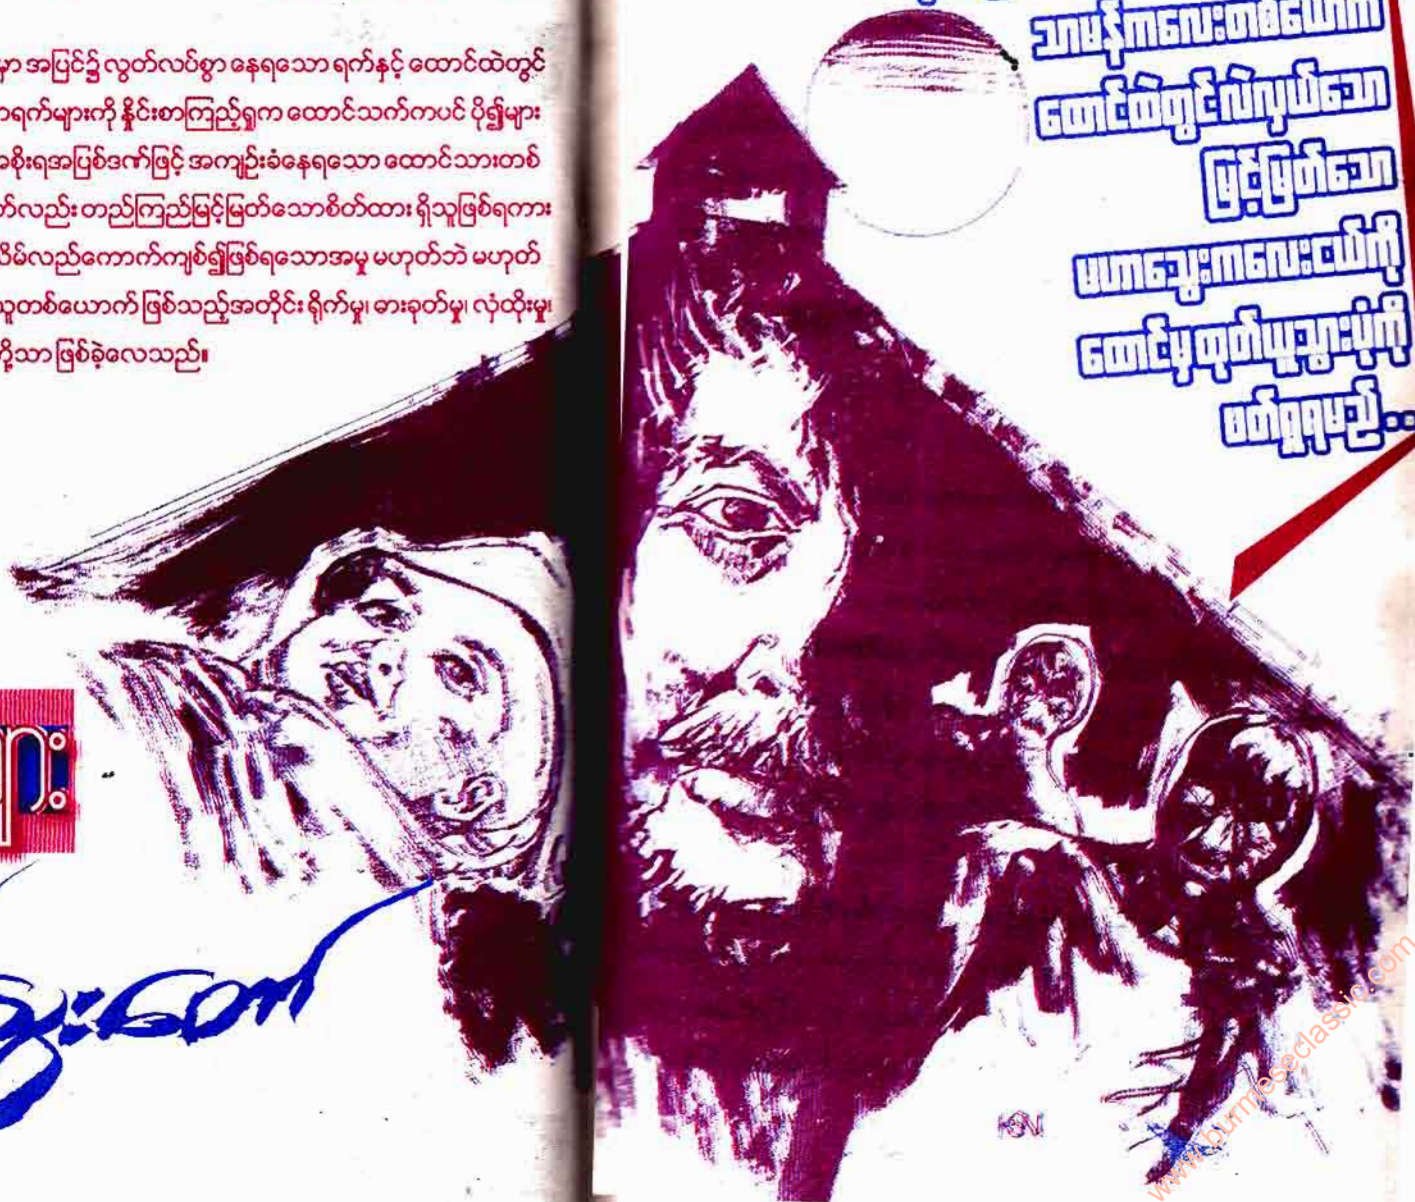 မှာ အပြင်၌ လွတ်လပ်စွာ နေရသော ရက်နှင့် ထောင်ထဲတွင်
ရက်များကို နှိုင်းစာကြည့်ရှုက ထောင်သက်ကပင် ပို၍များ
အစိုးရအပြစ်ဒဏ်ဖြင့် အကျဉ်းခံနေရသော ထောင်သားတစ်
လည်း တည်ကြည်မြင့်မြတ်သောစိတ်ထား ရှိသူဖြစ်ရကား
လိမ်လည်ကောက်ကျစ်၍ဖြစ်ရသောအမှု မဟုတ်ဘဲ မဟုတ်
သူတစ်ယောက် ဖြစ်သည့်အတိုင်း ရိုက်မှု၊ ဓားခုတ်မှု၊ လှံထိုးမှု၊
တို့သာ ဖြစ်ခဲ့လေသည်။
သာမန်ကလေးတစ်ယောက်
ထောင်ထဲတွင်လဲလှယ်သော
မြင့်မြတ်သော
မဟာသွေးကလေးငယ်ကို
ထောင်မှထုတ်ယူသွားပုံကို
ဖတ်ရှုရမည်..
များ
www.burmeseclassic.com